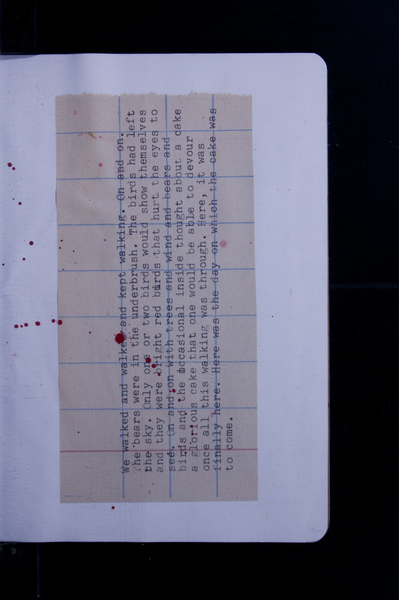 We walked and walked and kept walking. On and on.
The bears were in the underbrush. The birds had left
the sky. Only one or two birds would show themselves
and they were bright red birds that hurt the eyes to
see. On and on with trees and wind and bears and
birds and the occasional inside thought about a cake
a glorious cake that one would be able to devour
once all this walking was through. Here, it was
finally here. Here was the day on which the cake was
to come.